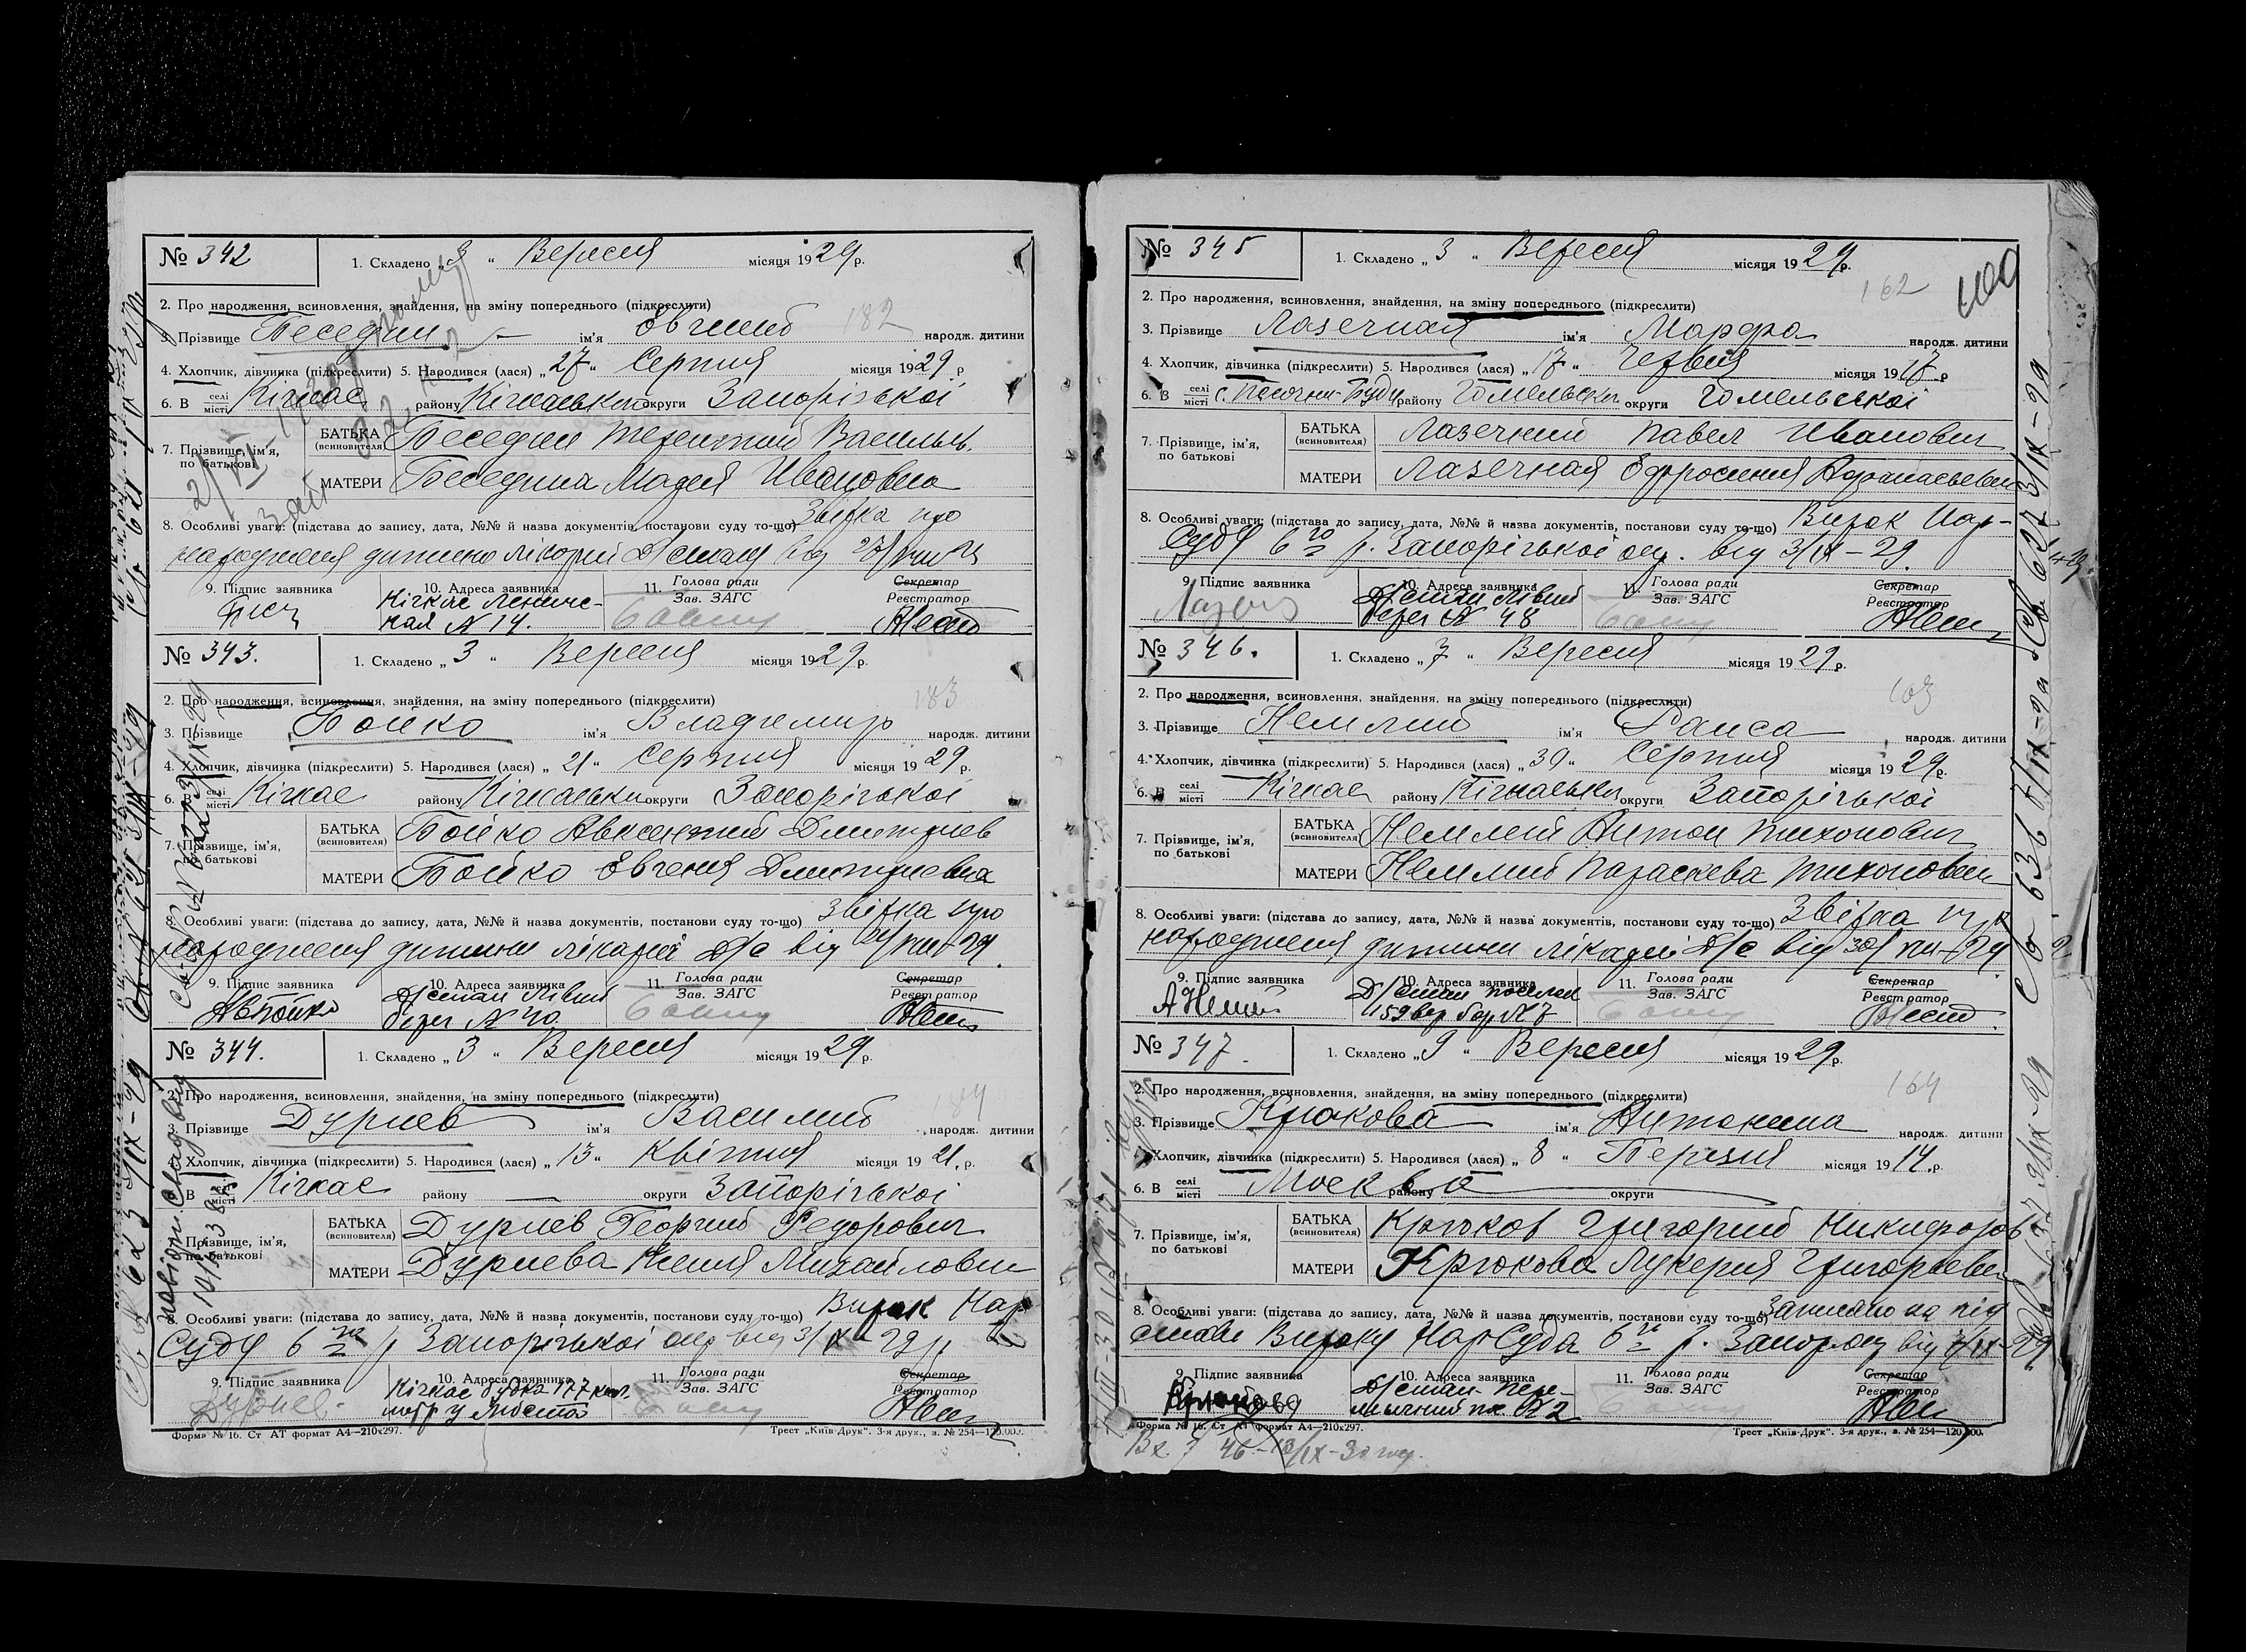 № 342
1. Складено „3 “ Вересня місяця 1929 р.
2. Про народження, всиновлення, знайдення, на зміну попереднього (підкреслити)
182
3. Прізвище Беседин ім'я народж. дитини
4. Хлопчик, дівчинка (підкреслити) 5. Народився (лася) „27“ Серпня місяця 1929 р
6. В селі місті Кічкас району Кічкаськ округи Запорізької
7. Прізвище, ім'я, по батькові БАТЬКА (всиновителя) Беседин Терентий Васильев.
МАТЕРИ Беседина Мария Ивановна
8. Особливі уваги: (підстава до запису, дата, №№ й назва документів, постанови суду то-що) Звістка про
народження дитини лікарні Д/стану від 27/VIII 29
9. Підпис заявника 10. Адреса заявника 11. Голова ради Зав. ЗАГС Секретар Реєстратор
Кічкас Ленинс-
кая № 14.
№ 343.
1. Складено „3 “ Вересня місяця 1929 р.
2. Про народження, всиновлення, знайдення, на зміну попереднього (підкреслити)
183
3. Прізвище Бойко ім'я Владимир народж. дитини
4. Хлопчик, дівчинка (підкреслити) 5. Народився (лася) „ 21“ Серпня місяця 19 29 р.
6. В селі місті Кічкас району Кічкаськи округи Запорізької
7. Прізвище, ім'я, по батькові БАТЬКА (всиновителя) Бойко Авксентий Дмитриев
МАТЕРИ Бойко Евгения Дмитриевна
8. Особливі уваги: (підстава до запису, дата, №№ й назва документів, постанови суду то-що) Звістка про
народження дитини лікарні Д/с від 21/VIII-29.
9. Підпис заявника 10. Адреса заявника 11. Голова ради Зав. ЗАГС Секретар Реєстратор
АвБойко Д/стан Лівий
берег № 40
№ 344.
1. Складено „3 “ Вересня місяця 1929 р.
2. Про народження, всиновлення, знайдення, на зміну попереднього (підкреслити)
184
3. Прізвище Дурнев ім'я Василий народж. дитини
4. Хлопчик, дівчинка (підкреслити) 5. Народився (лася) „13“ Квітня місяця 19 21. р.
6. В селі місті Кічкас району — округи Запорізької
7. Прізвище, ім'я, по батькові БАТЬКА (всиновителя) Дурнев Георгий Федорович
МАТЕРИ Дурнева Ксения Михайловн
8. Особливі уваги: (підстава до запису, дата, №№ й назва документів, постанови суду то-що) Вирок Нар
Суду 6 го р Запорізької окр від 3/IX-29 р
9. Підпис заявника 10. Адреса заявника 11. Голова ради Зав. ЗАГС Секретар Реєстратор
Дурнев. Кічкас будка 177 кил.
метр у Моста
Форма № 16. Ст АТ формат А4—210х297. Трест „Київ-Друк“. 3-я друк., з. № 254—120.000.
№ 345
1. Складено „ 3 “ Вересня місяця 19 29 р.
2. Про народження, всиновлення, знайдення, на зміну попереднього (підкреслити)
162
3. Прізвище Лазечная ім'я Марфа народж. дитини
4. Хлопчик, дівчинка (підкреслити) 5. Народився (лася) „ 17 “ Червня місяця 19 17 р
6. В селі місті району Гомельськ округи Гомельської
7. Прізвище, ім'я, по батькові БАТЬКА (всиновителя) Лазечний Павел Иванович
МАТЕРИ Лазечная Ефросиния Афанасьевна
8. Особливі уваги: (підстава до запису, дата, №№ й назва документів, постанови суду то-що) Вирок Нар-
Суду 6 го р. Запорізької окр. від 3/IX-29.
9. Підпис заявника 10. Адреса заявника 11. Голова ради Зав. ЗАГС Секретар Реєстратор
Д/стан Лівий
берег № 48
№ 346.
1. Складено „ 7 “ Вересня місяця 19 29 р.
2. Про народження, всиновлення, знайдення, на зміну попереднього (підкреслити)
163
3. Прізвище Немлий ім'я Раиса народж. дитини
4. Хлопчик, дівчинка (підкреслити) 5. Народився (лася) „ 30 “ Серпня місяця 19 29 р.
6. В селі місті Кічкас району Кічкаськи округи Запорізької
7. Прізвище, ім'я, по батькові БАТЬКА (всиновителя) Немлий Антон Тихонович
МАТЕРИ Немлий Параскева Тихоновна
8. Особливі уваги: (підстава до запису, дата, №№ й назва документів, постанови суду то-що) Звістка про
народження дитини лікарні Д/с від 30/VIII-29
9. Підпис заявника 10. Адреса заявника 11. Голова ради Зав. ЗАГС Секретар Реєстратор
Д/стан поселок
№ 7
№ 347.
1. Складено „ 9 “ Вересня місяця 19 29 р.
2. Про народження, всиновлення, знайдення, на зміну попереднього (підкреслити)
164
3. Прізвище Крюкова ім'я Антонина народж. дитини
4. Хлопчик, дівчинка (підкреслити) 5. Народився (лася) „ 8 “ Березня місяця 19 14. р.
6. В селі місті Москва району округи
7. Прізвище, ім'я, по батькові БАТЬКА (всиновителя) Крюков Григорий Никифоров
МАТЕРИ Крюкова Лукерия Григорьевн
8. Особливі уваги: (підстава до запису, дата, №№ й назва документів, постанови суду то-що) Записано на під
стави Вироку НарСуда 6 го р. Запор. окр від 7/IX-29.
9. Підпис заявника 10. Адреса заявника 11. Голова ради Зав. ЗАГС Секретар Реєстратор
Крюкова Д/стан-
№ 2
Форма № 16. Ст АТ формат А4—210х297. Трест „Київ-Друк“. 3-я друк., з. № 254—120.000.